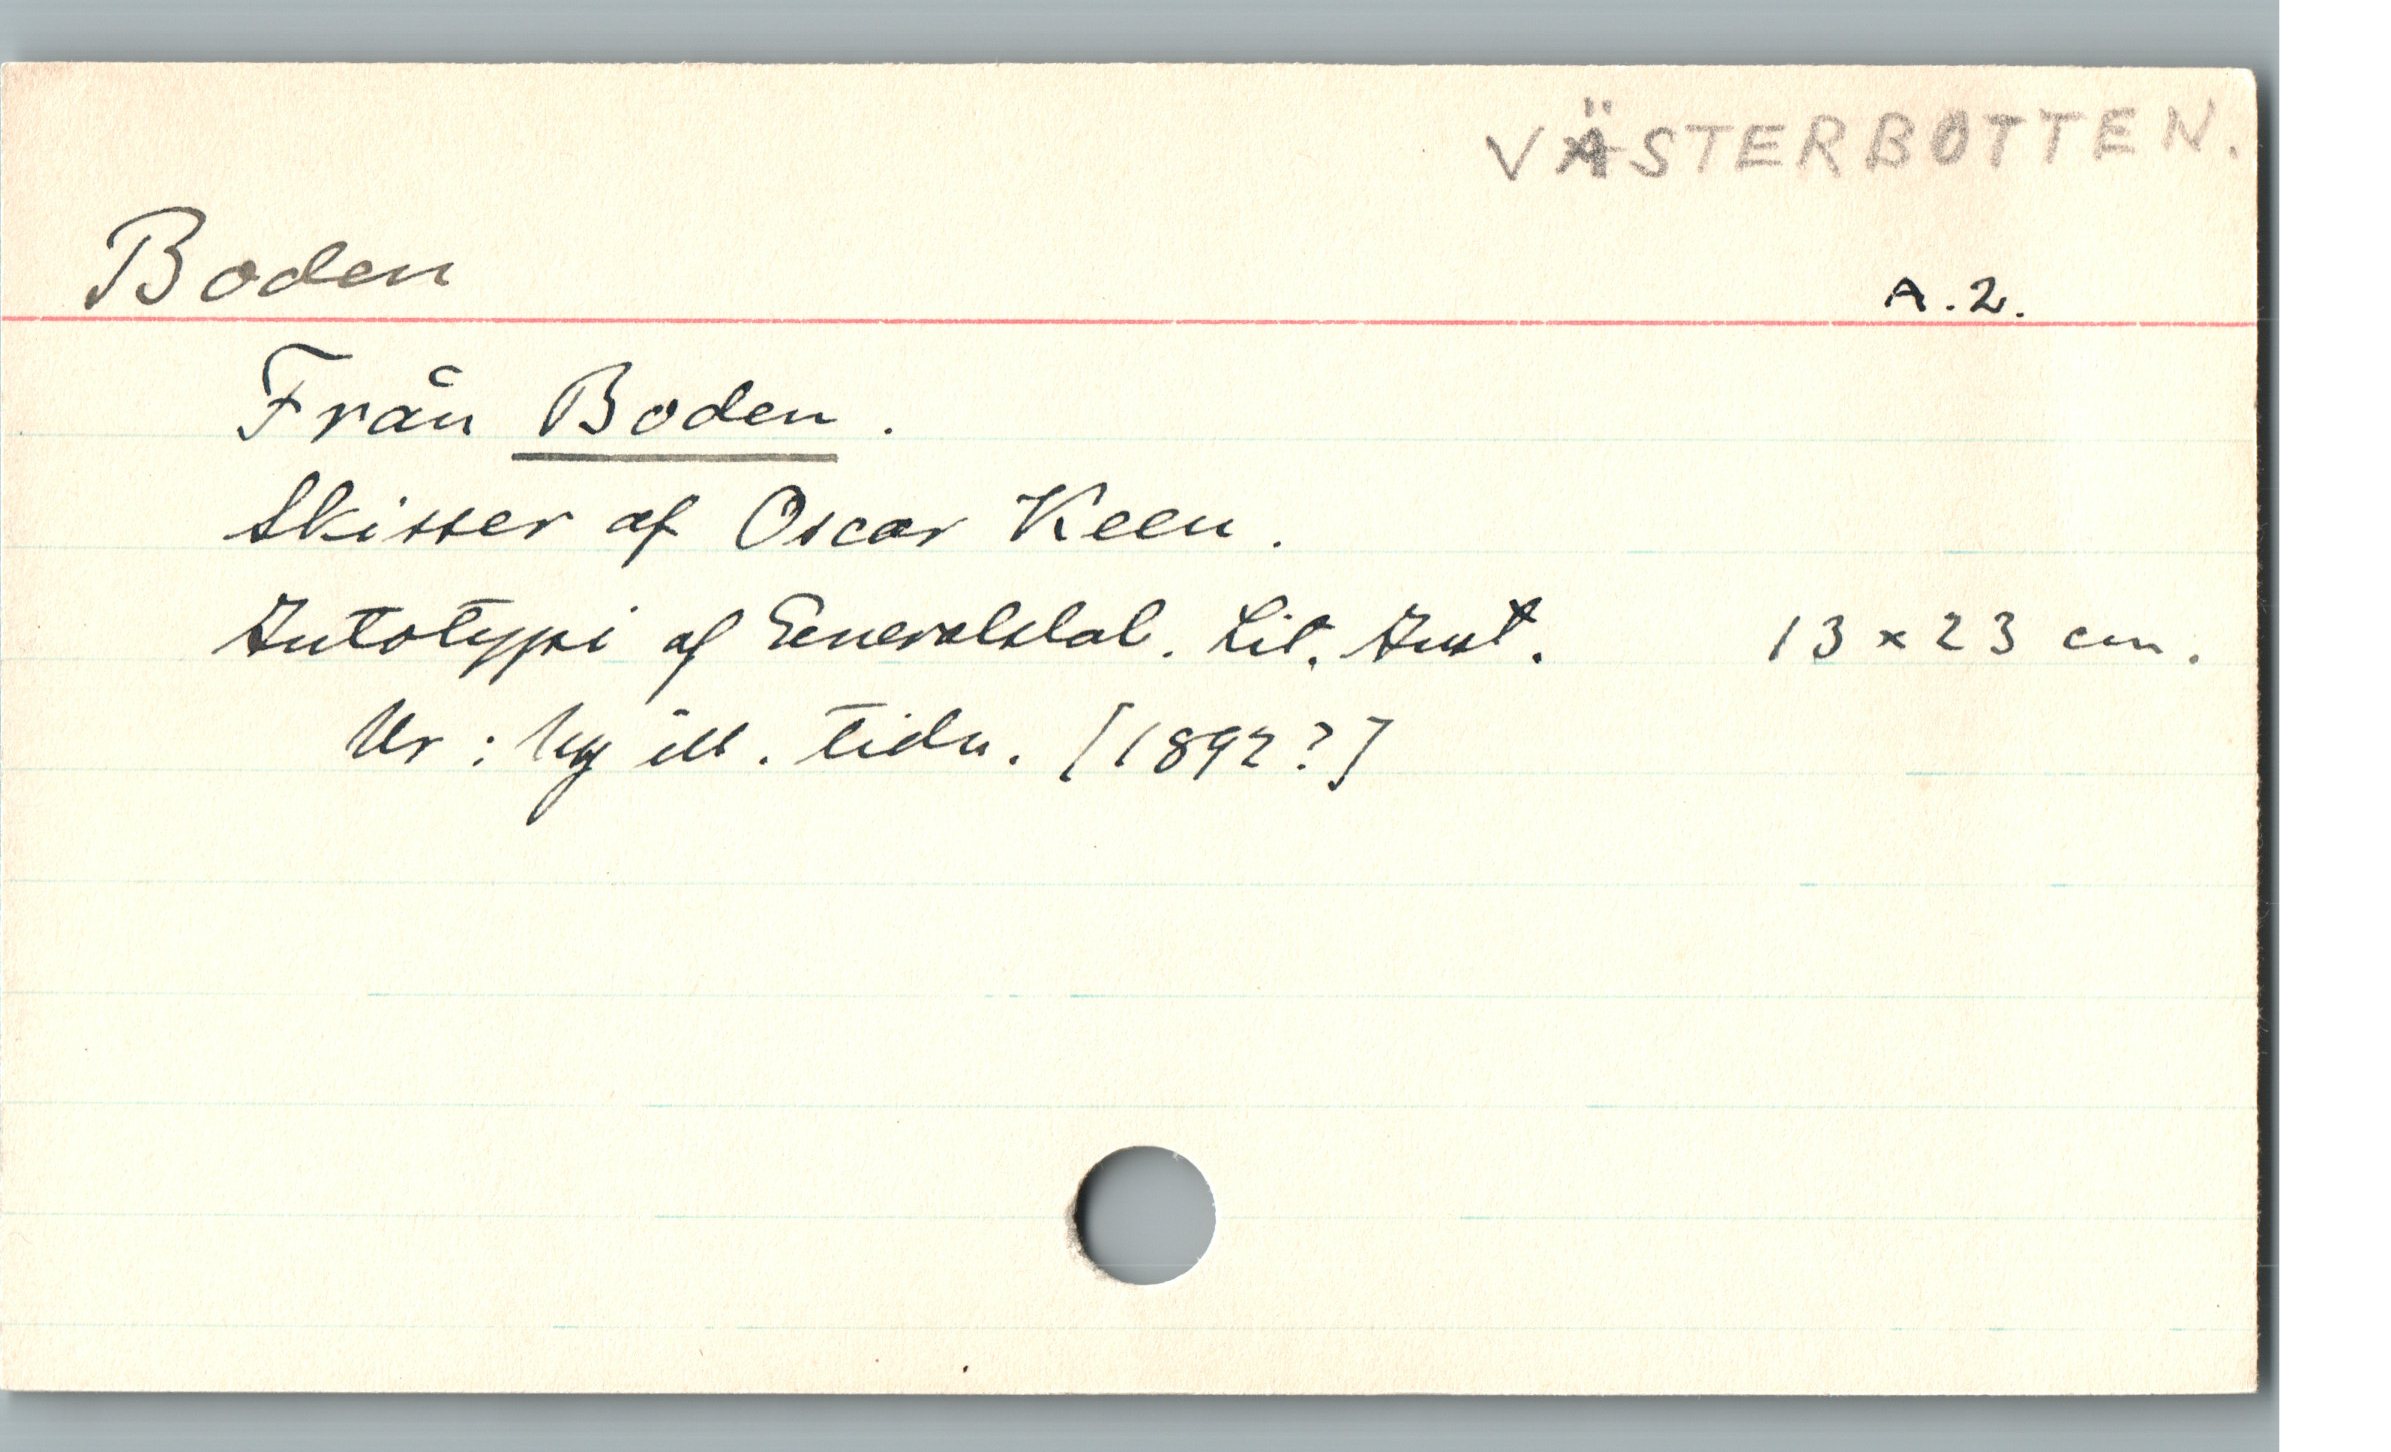 VÄSTERBOTTEN.
Boden
A.2.
Från Boden.
Skisser af Oscar Keen.
Autotypi af Generalstab. Lit. Anst. 13 x 23 cm.
Ur: Ny ill. tidn. [1892?]